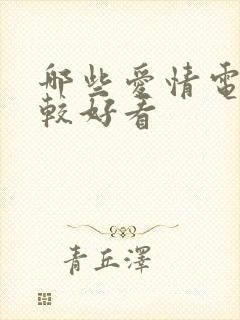 哪些愛情電
較好看
青丘澤